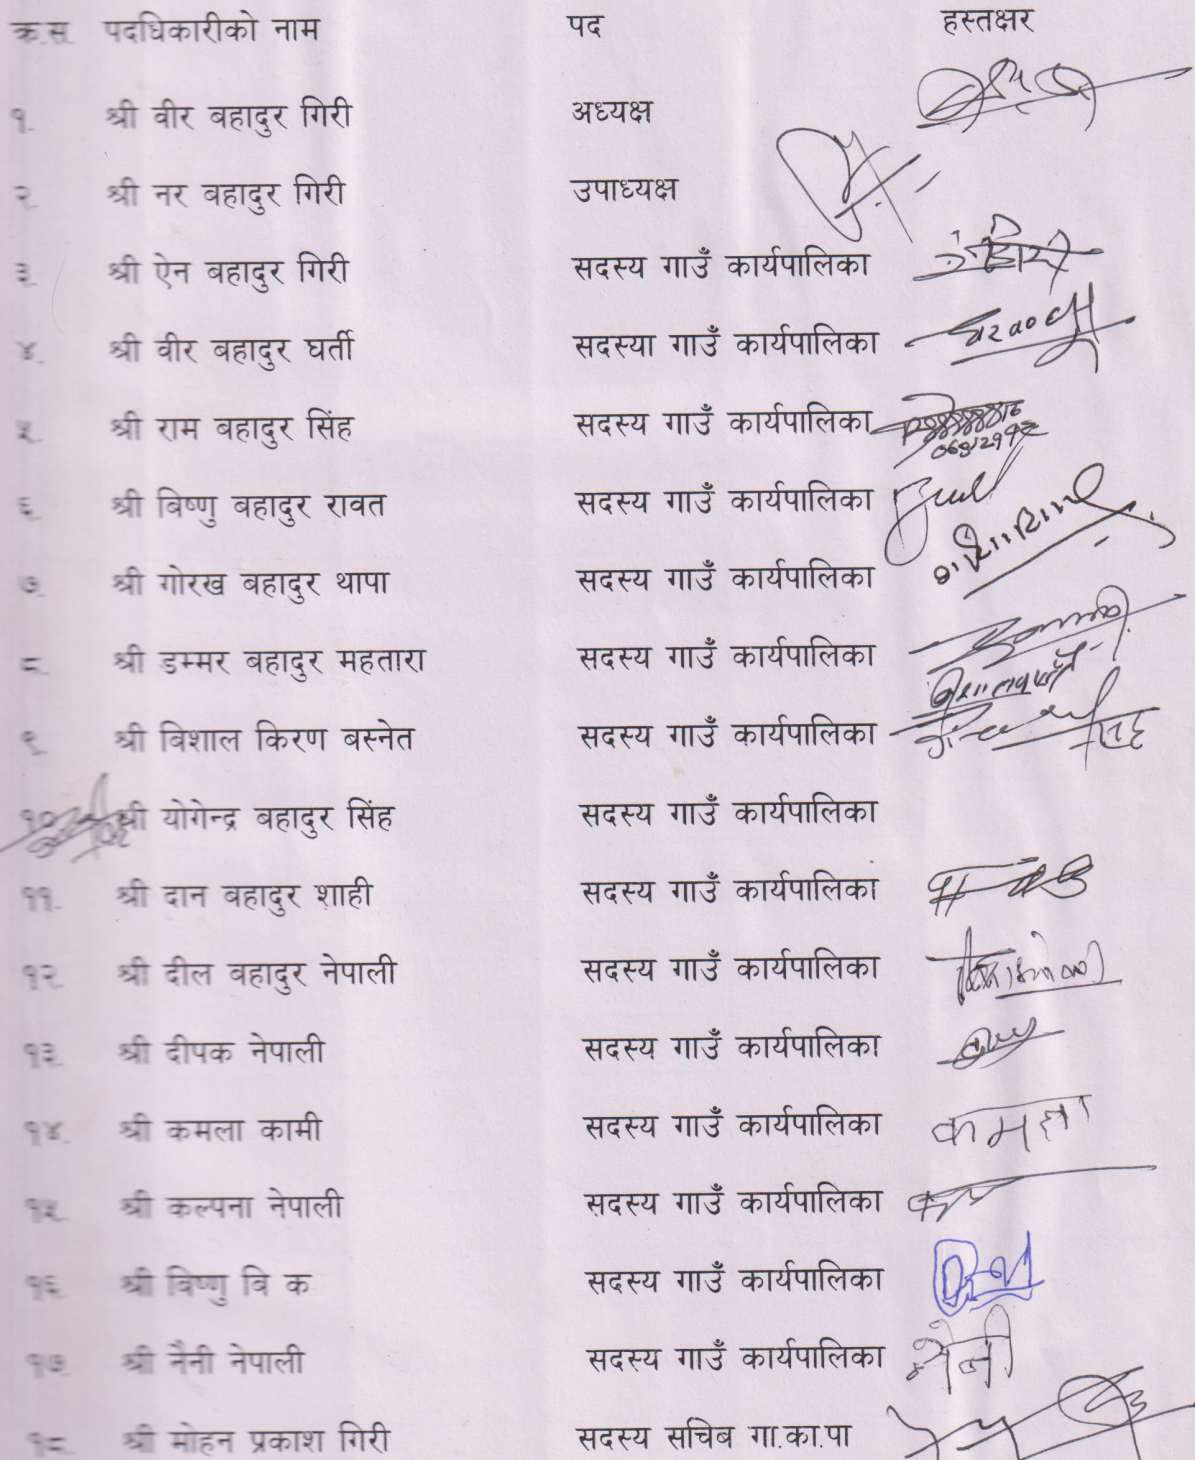 क्र.स. पदधिकारीको नाम पद हस्तक्षर
१. श्री वीर बहादुर गिरी अध्यक्ष
२. श्री नर बहादुर गिरी उपाध्यक्ष
३. श्री ऐन बहादुर गिरी सदस्य गाउँ कार्यपालिका
४. श्री वीर बहादुर घर्ती सदस्या गाउँ कार्यपालिका
५. श्री राम बहादुर सिंह सदस्य गाउँ कार्यपालिका
६. श्री बिष्णु बहादुर रावत सदस्य गाउँ कार्यपालिका
७. श्री गोरख बहादुर थापा सदस्य गाउँ कार्यपालिका
८. श्री डम्मर बहादुर महतारा सदस्य गाउँ कार्यपालिका
९. श्री बिशाल किरण बस्नेत सदस्य गाउँ कार्यपालिका
१०. श्री योगेन्द्र बहादुर सिंह सदस्य गाउँ कार्यपालिका
११. श्री दान बहादुर शाही सदस्य गाउँ कार्यपालिका
१२. श्री दील बहादुर नेपाली सदस्य गाउँ कार्यपालिका
१३. श्री दीपक नेपाली सदस्य गाउँ कार्यपालिका
१४. श्री कमला कामी सदस्य गाउँ कार्यपालिका कमला
१५. श्री कल्पना नेपाली सदस्य गाउँ कार्यपालिका
१६. श्री बिष्णु बि क सदस्य गाउँ कार्यपालिका
१७. श्री नैनी नेपाली सदस्य गाउँ कार्यपालिका नैनी
१८. श्री मोहन प्रकाश गिरी सदस्य सचिब गा.का.पा